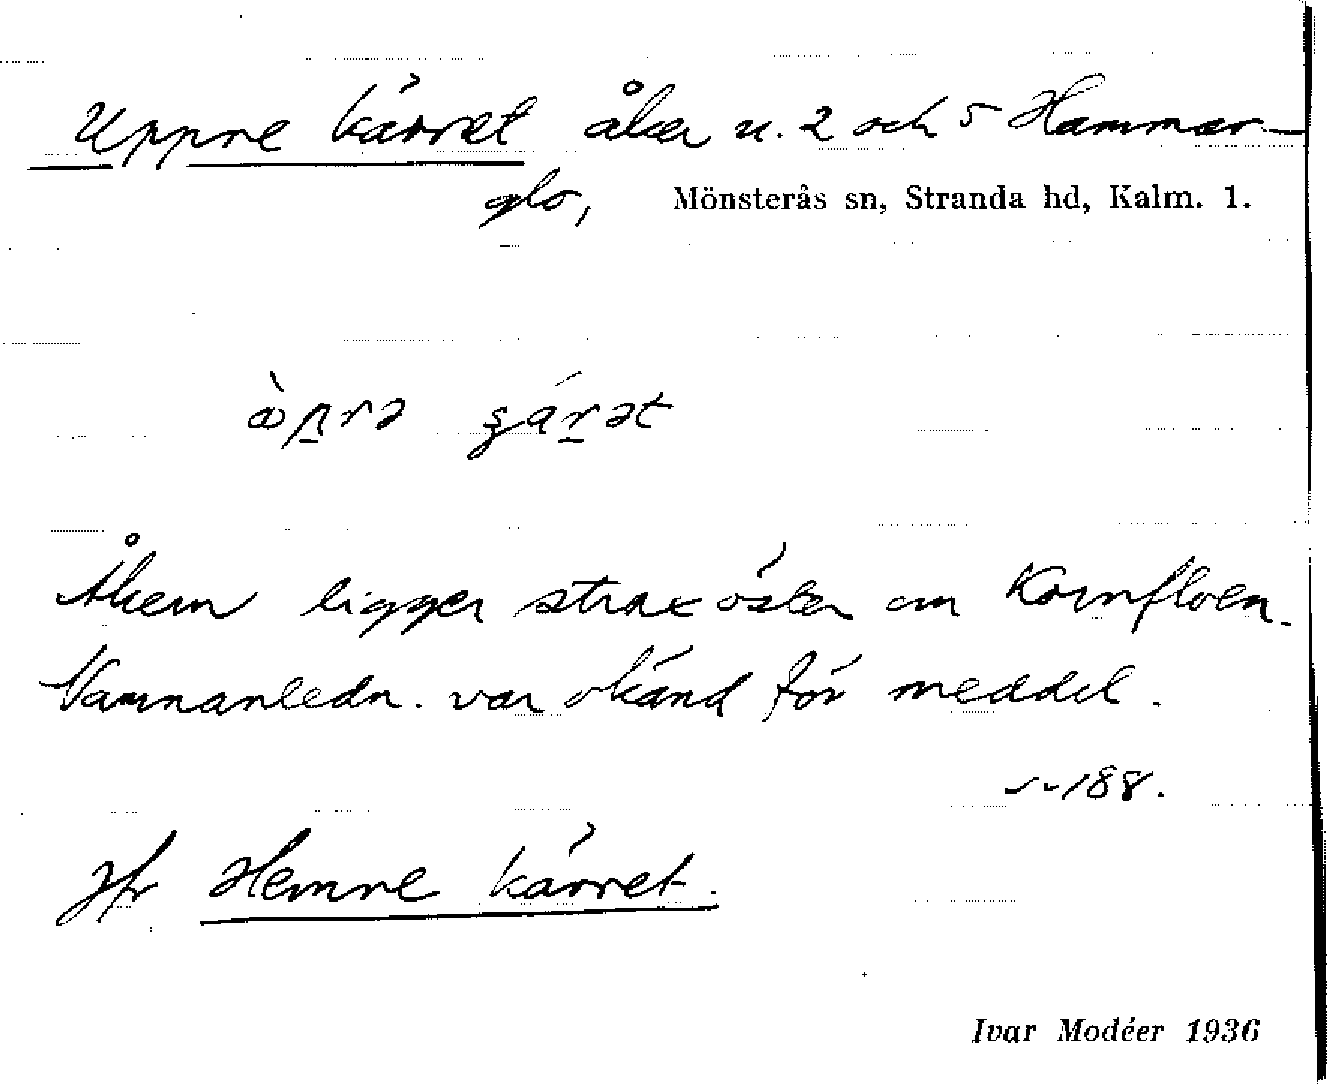 Uppre kärret åker u. 2 och 5 Hammar-
glo, Mönsterås sn, Stranda hd, Kalm. 1.
Åkern ligger strax öster om Kornfloen.
Namnanledn. var okänd för meddel.
188.
Jfr Hemre kärret.
Ivar Modéer 1936